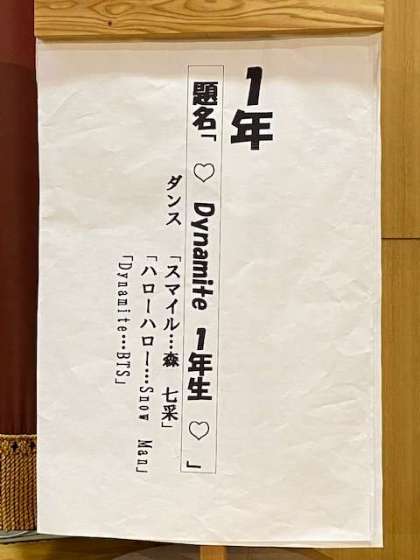 1年
題名「 ♡ Dynamite 1年生 ♡ 」
ダンス 「スマイル…森 七采」
「ハローハロー…Snow Man」
「Dynamite…BTS」